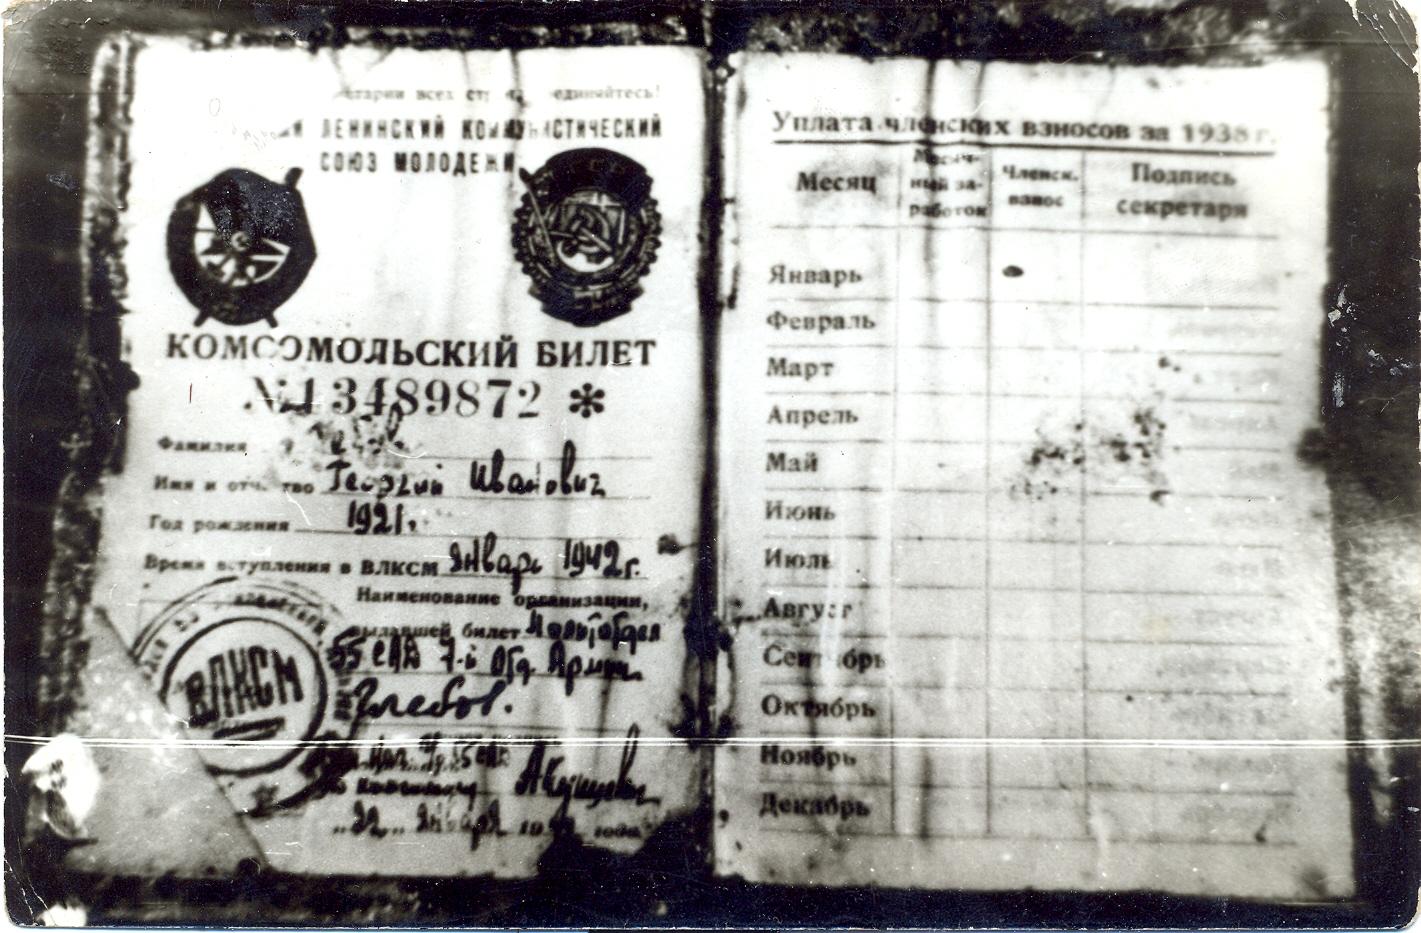 всех единяйтесь!
ЛЕНИНСКИЙ КОММУНИСТИЧЕСКИЙ
СОЮЗ МОЛОДЕЖИ
КОМСОМОЛЬСКИЙ БИЛЕТ
№13489872 *
Фамилия
Имя и отчество Георгий Иванович
Год рождения 1921г.
Время вступления в ВЛКСМ январь 1942г.
Наименование организации,
выдавшей билет Политотдел
55 САД 7-й Отд. Армии
Глебов.
ВЛКСМ
"22" января 19 года
Уплата членских взносов за 1938 г.
Месяц
Месяч-
ный за-
работок
Членск.
взнос
Подпись
секретаря
Январь
Февраль
Март
Апрель
Май
Июнь
Июль
Август
Сентябрь
Октябрь
Ноябрь
Декабрь